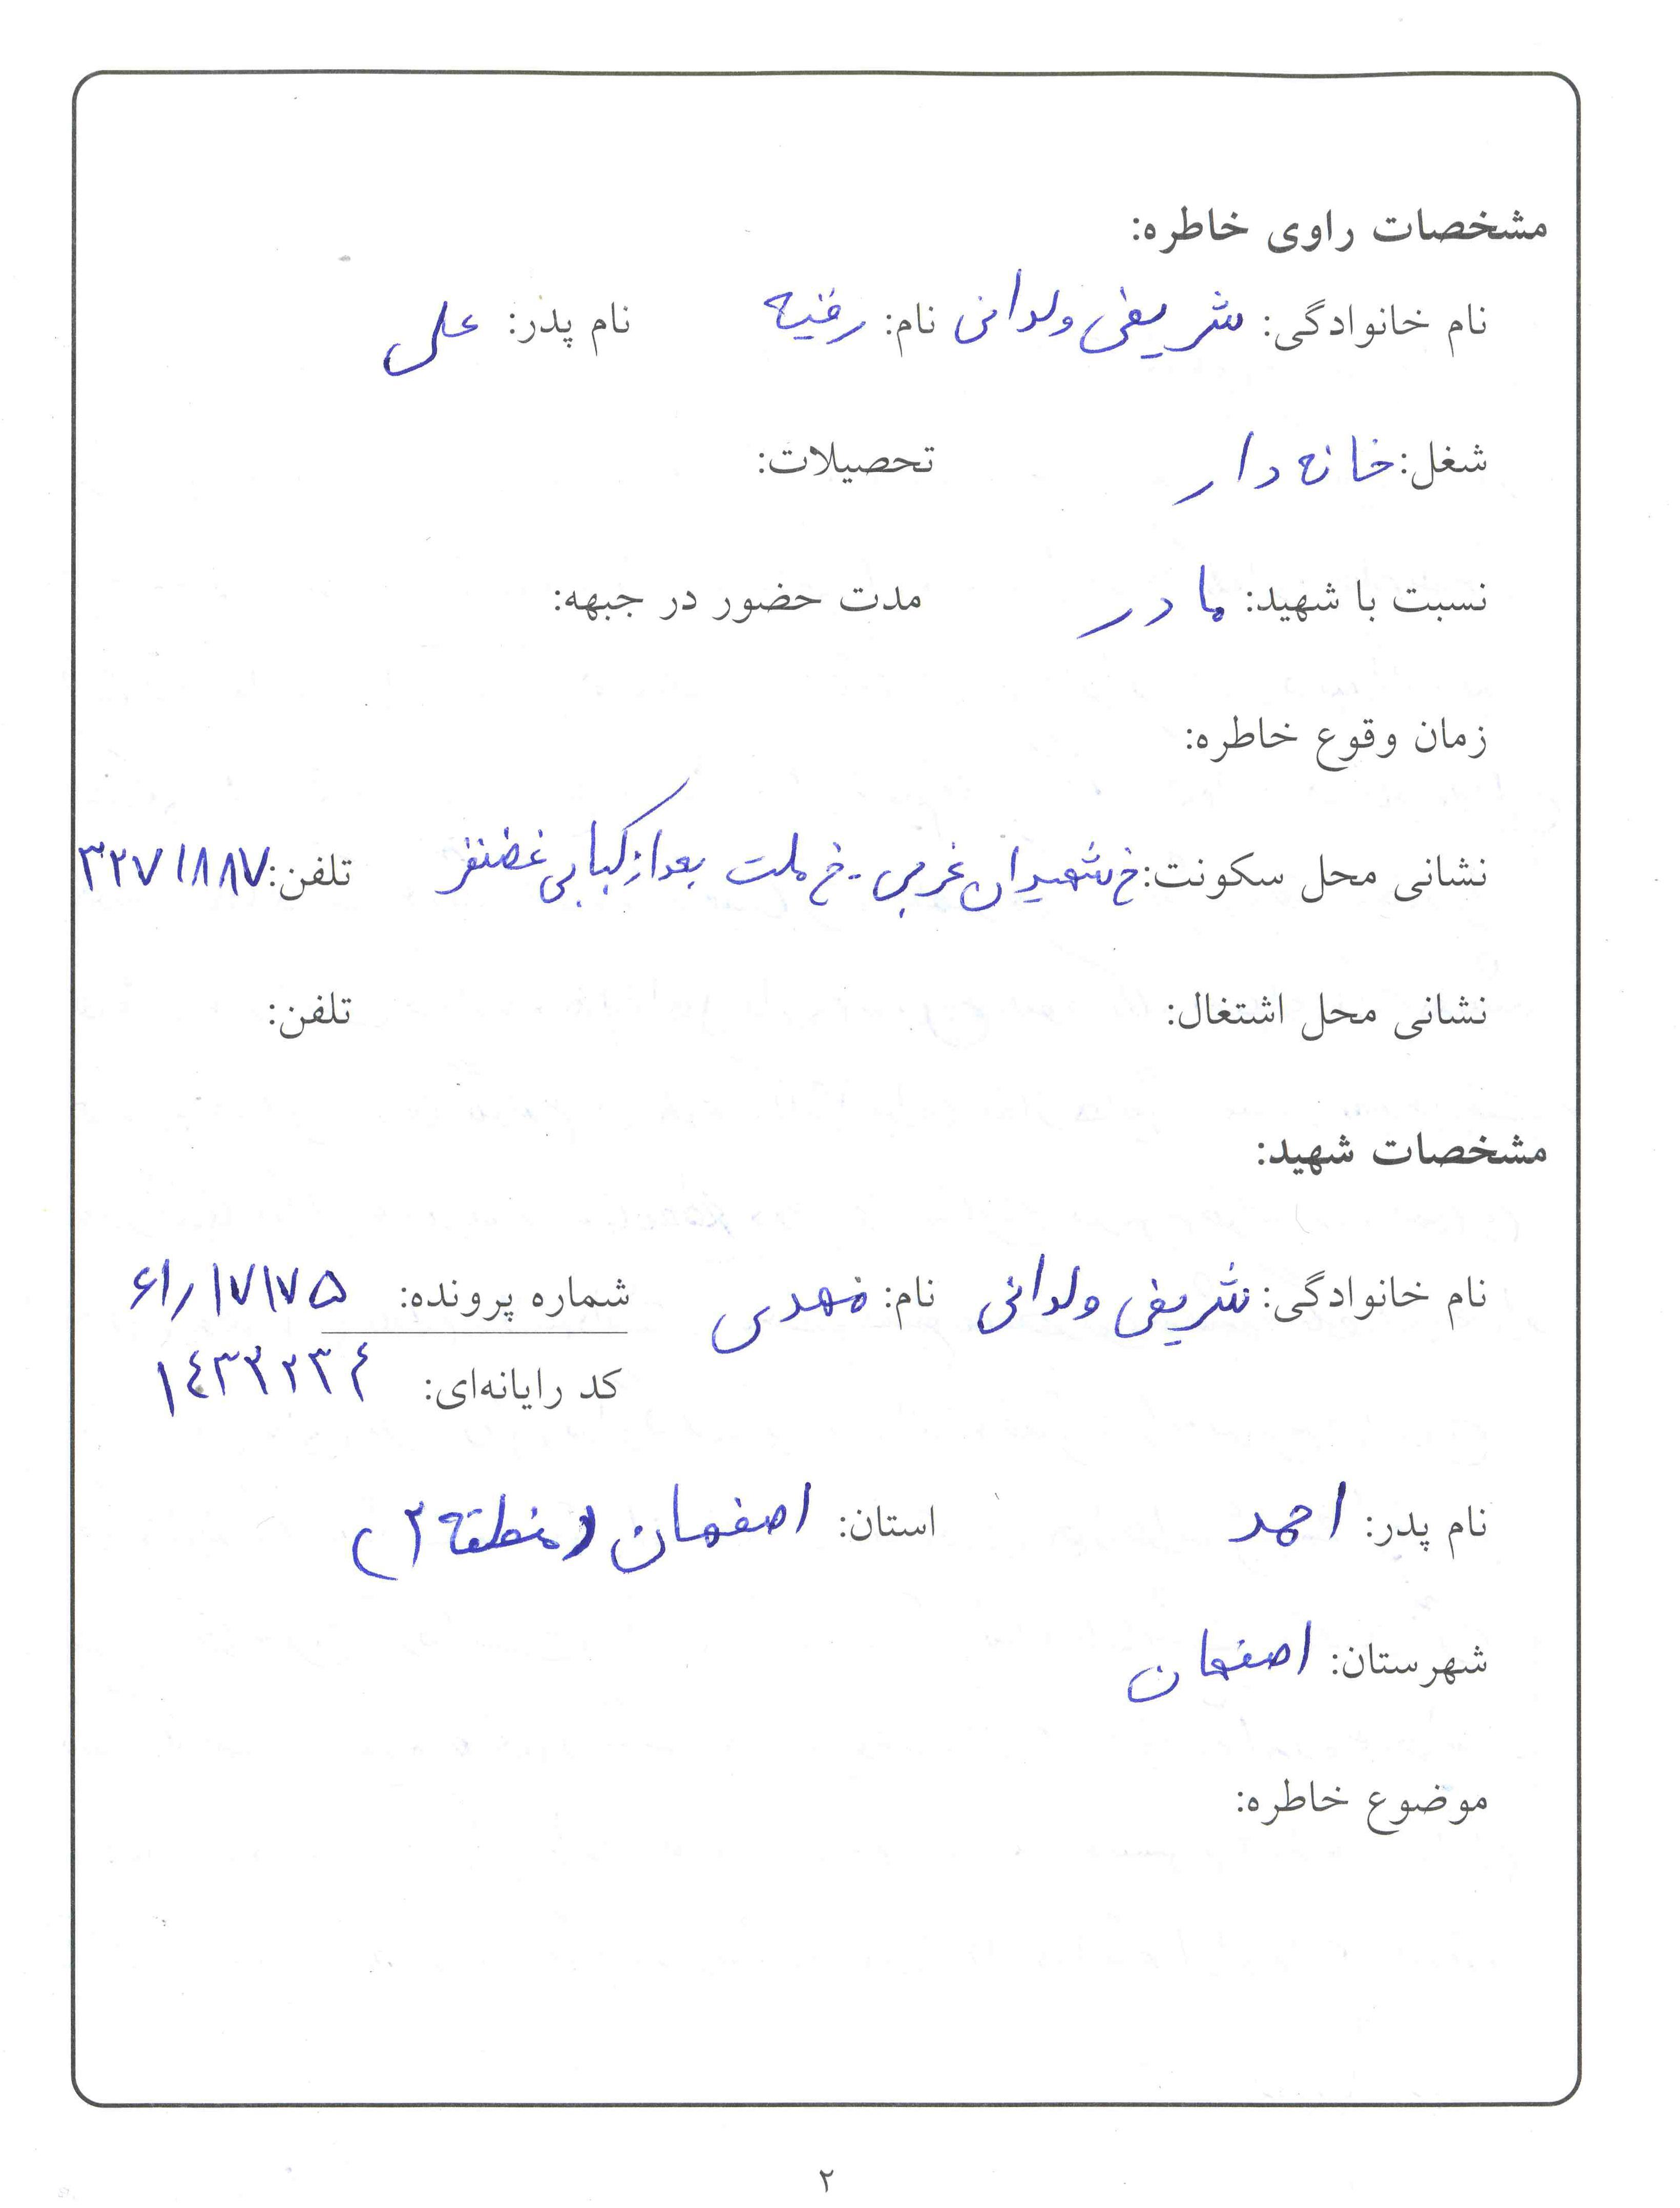 مشخصات راوی خاطره:
نام خانوادگی: شریفی ولدانی نام: رقیه نام پدر: علی
شغل: خانه دار تحصیلات:
نسبت با شهید: مادر مدت حضور در جبهه:
زمان وقوع خاطره:
نشانی محل سکونت: خ شهیدان غربی - خ ملت بعد از کبابی غضنفر تلفن: ۳۲۷۱۸۸۷
نشانی محل اشتغال: تلفن:
مشخصات شهید:
نام خانوادگی: شریفی ولدانی نام: مهدی شماره پرونده: ۶۱/۱۷۱۷۵
کد رایانه‌ای:
نام پدر: احمد استان: اصفهان (منطقه ۲)
شهرستان: اصفهان
موضوع خاطره:
۲